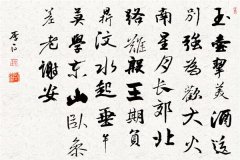 玉壺挈美酒送
別強為歡大火
南星月長郊北
路難殷王期負
鼎汶水起垂竿
莫學東山臥參
差老謝安